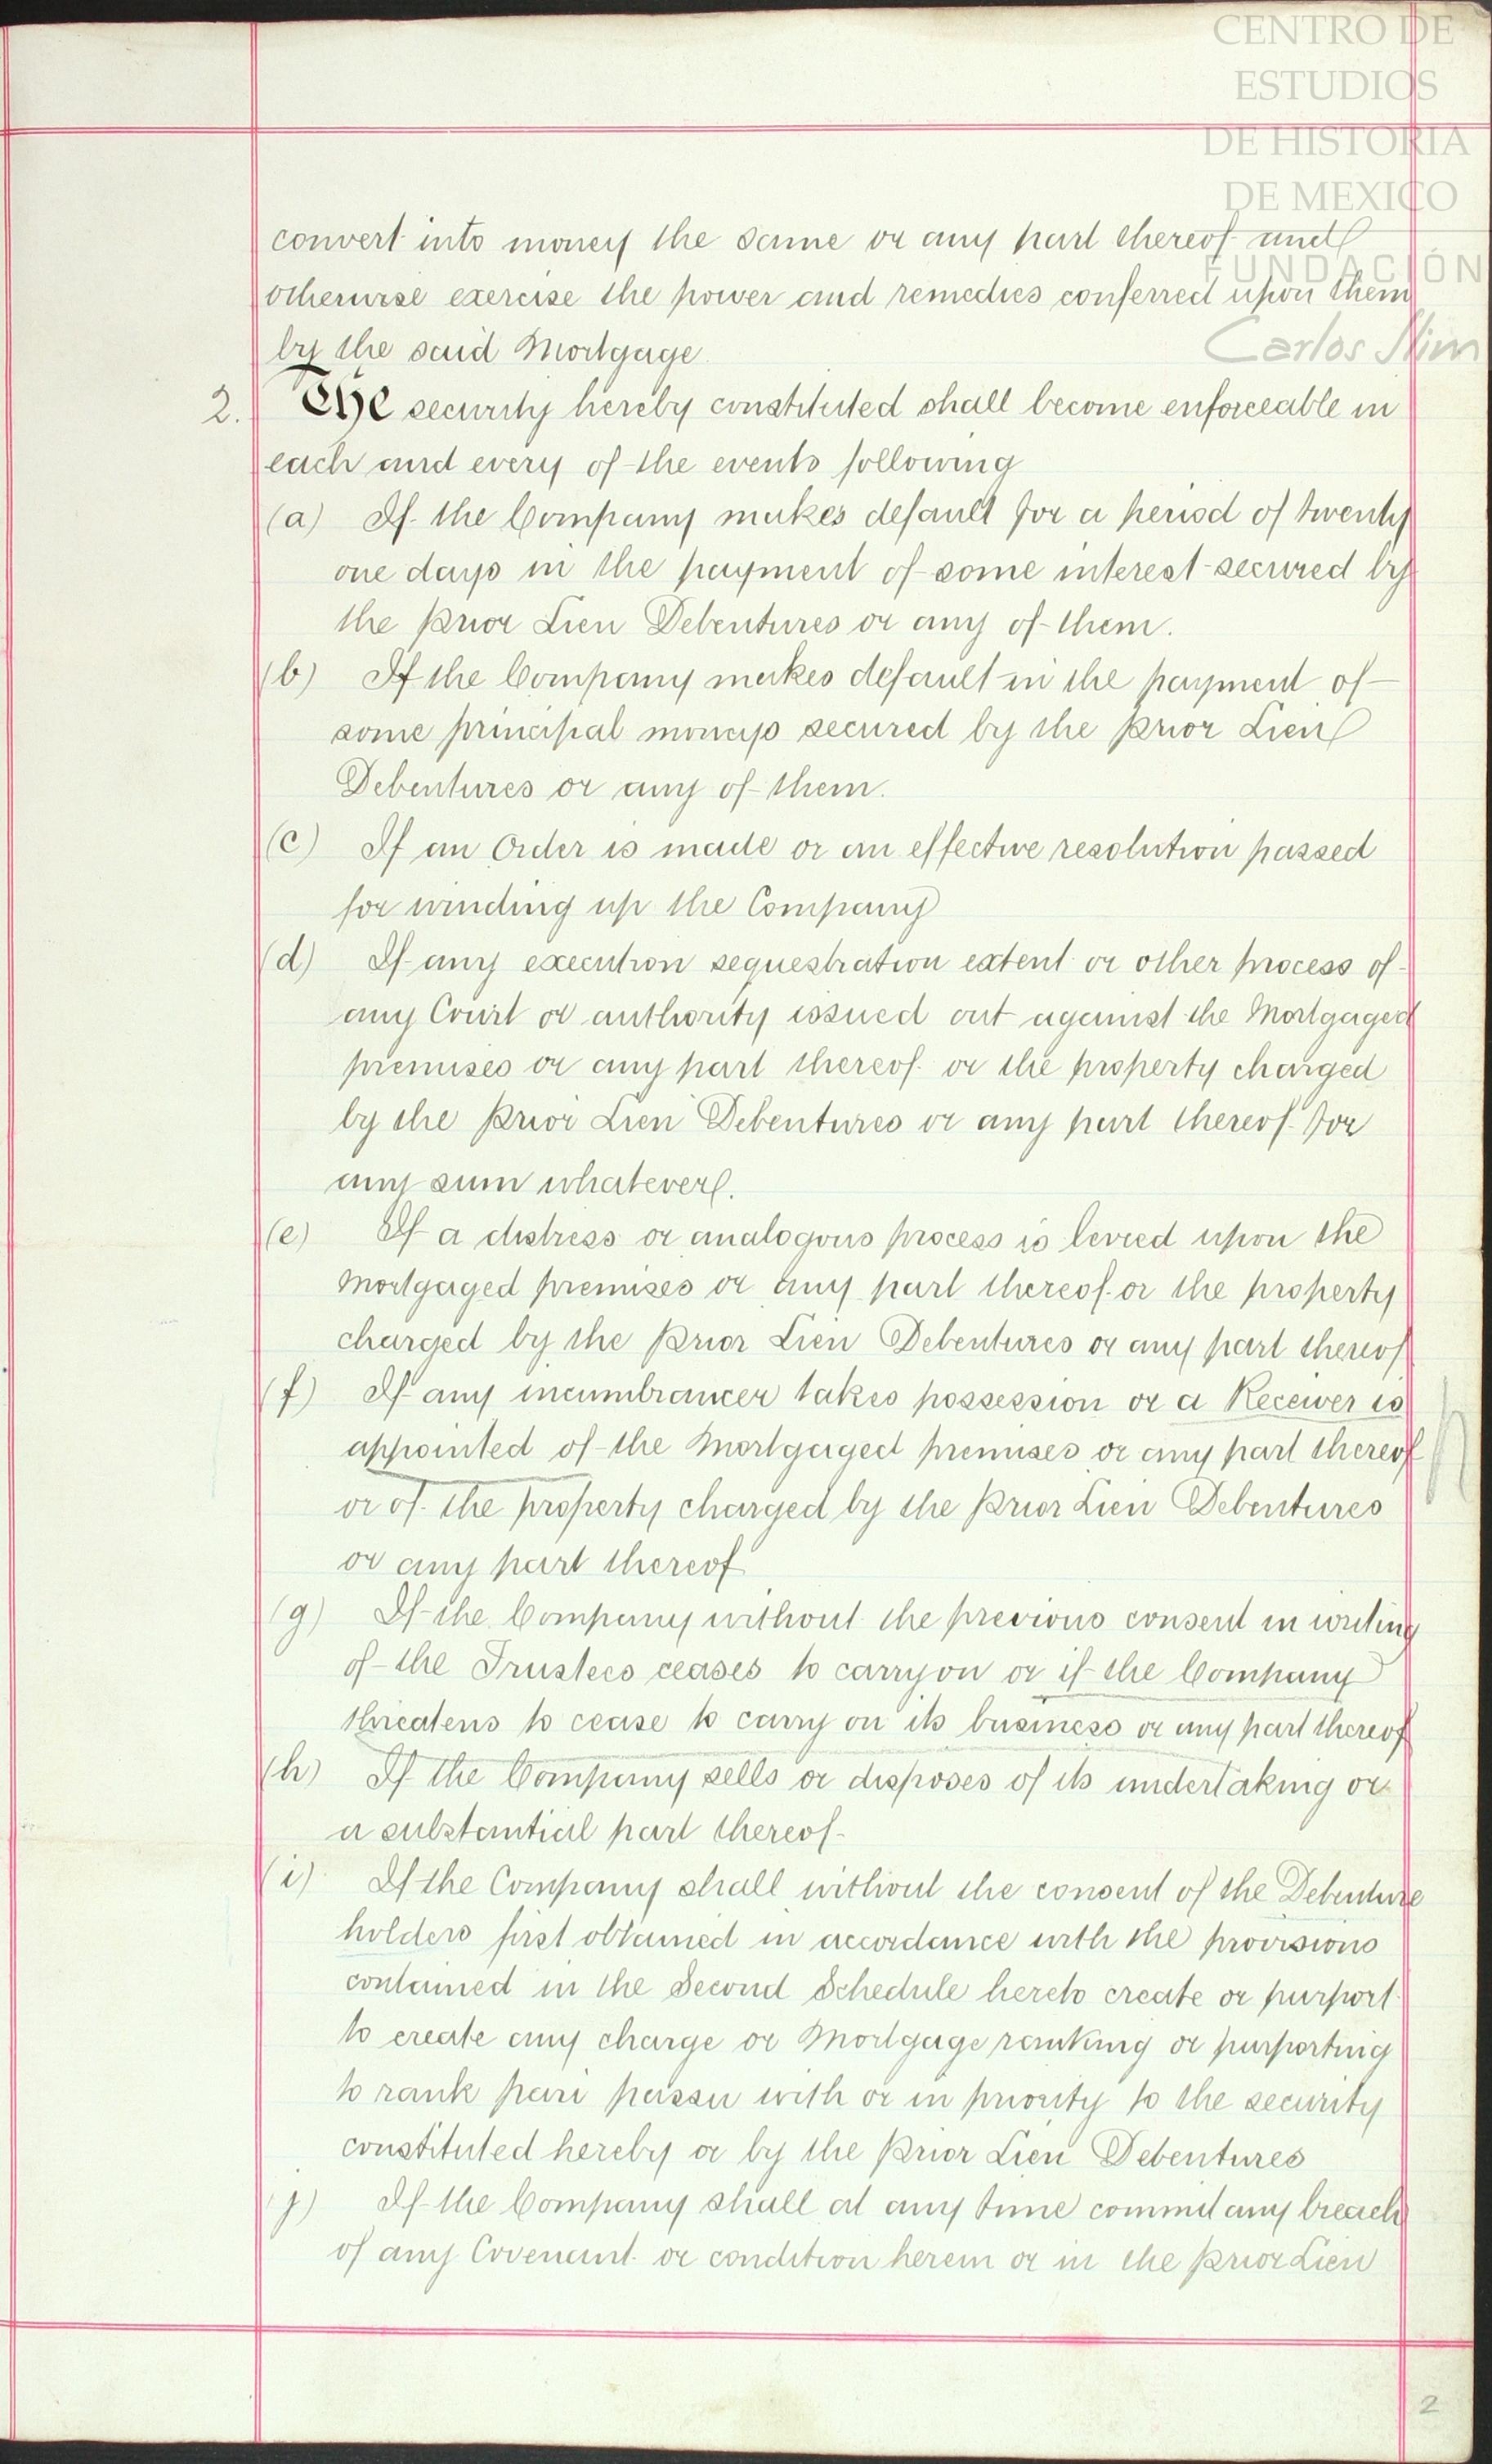 CENTRO DE
ESTUDIOS
DE HISTORIA
DE MEXICO
FUNDACIÓN
Carlos Slim
convert into money the same or any part thereof and
otherwise exercise the power and remedies conferred upon them
by the said Mortgage
2. The security hereby constituted shall become enforceable in
each and every of the events following
(a) If the Company makes default for a period of twenty
one days in the payment of some interest secured by
the Prior Lien Debentures or any of them.
(b) If the Company makes default in the payment of
some principal moneys secured by the Prior Lien
Debentures or any of them.
(c) If an Order is made or an effective resolution passed
for winding up the Company
(d) If any execution sequestration extent or other process of
any Court or authority issued out against the Mortgaged
premises or any part thereof or the property charged
by the Prior Lien Debentures or any part thereof for
any sum whatever.
(e) If a distress or analogous process is levied upon the
Mortgaged premises or any part thereof or the property
charged by the Prior Lien Debentures or any part thereof
(f) If any incumbrancer takes possession or a Receiver is
appointed of the Mortgaged premises or any part thereof
or of the property charged by the Prior Lien Debentures
or any part thereof
(g) If the Company without the previous consent in writing
of the Trustees ceases to carry on or if the Company
threatens to cease to carry on its business or any part thereof
(h) If the Company sells or disposes of its undertaking or
a substantial part thereof
(i) If the Company shall without the consent of the Debenture
holders first obtained in accordance with the provisions
contained in the Second Schedule hereto create or purport
to create any charge or Mortgage ranking or purporting
to rank pari passu with or in priority to the security
constituted hereby or by the Prior Lien Debentures
(j) If the Company shall at any time commit any breach
of any Covenant or condition herein or in the Prior Lien
2